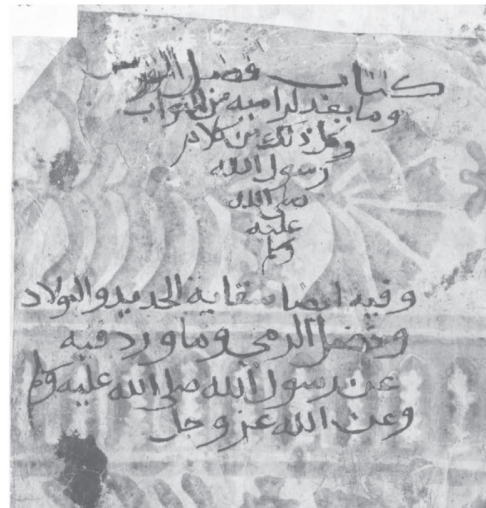 كتاب فضل القوس
وما يعد لراميه من الثواب
وكل ذلك من كلام
رسول الله
صلى الله
عليه
وسلم
وفيه ايضا سقاية الحديد والبولاد
وفضل الرمي وما ورد فيه
عن رسول الله صلى الله عليه وسلم
وعن الله عز وجل